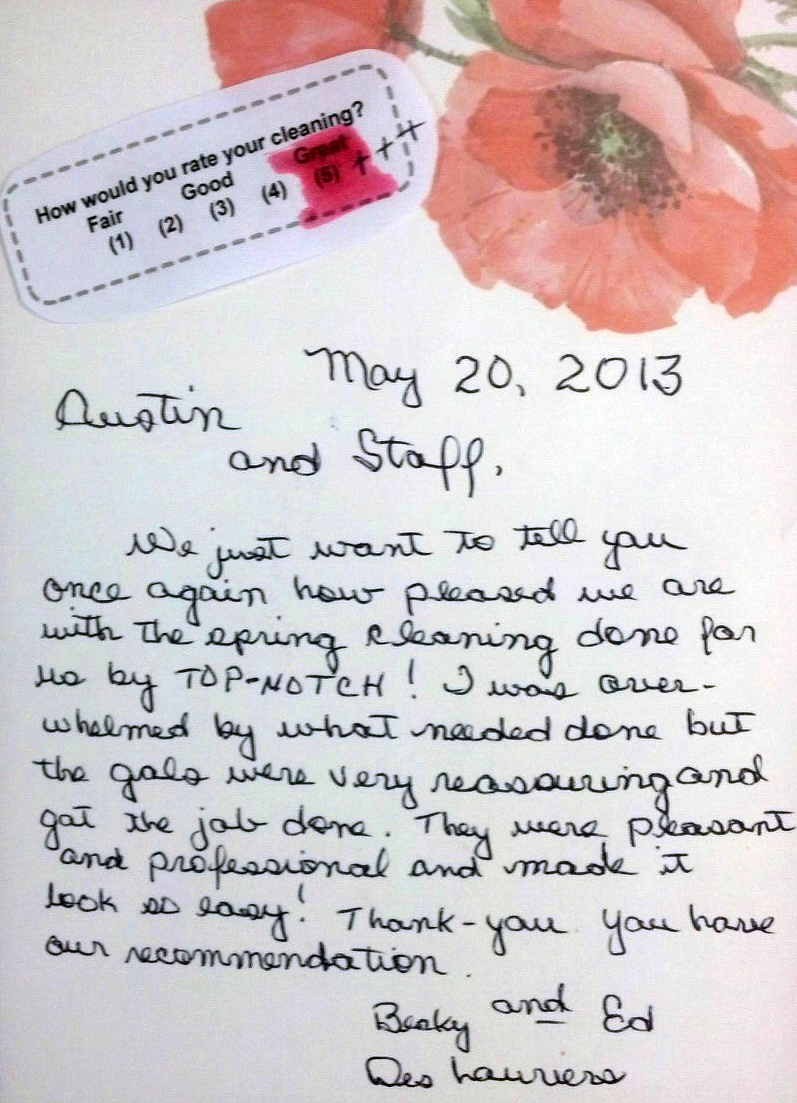 How would you rate your cleaning?
Fair Good Great
(1) (2) (3) (4) (5) +++
May 20, 2013
Austin
and Staff,
We just want to tell you
once again how pleased we are
with the spring cleaning done for
us by TOP-NOTCH! I was over-
whelmed by what needed done but
the gals were very reassuring and
got the job done. They were pleasant
and professional and made it
look so easy! Thank-you. You have
our recommendation.
Becky and Ed
Des Lauriers